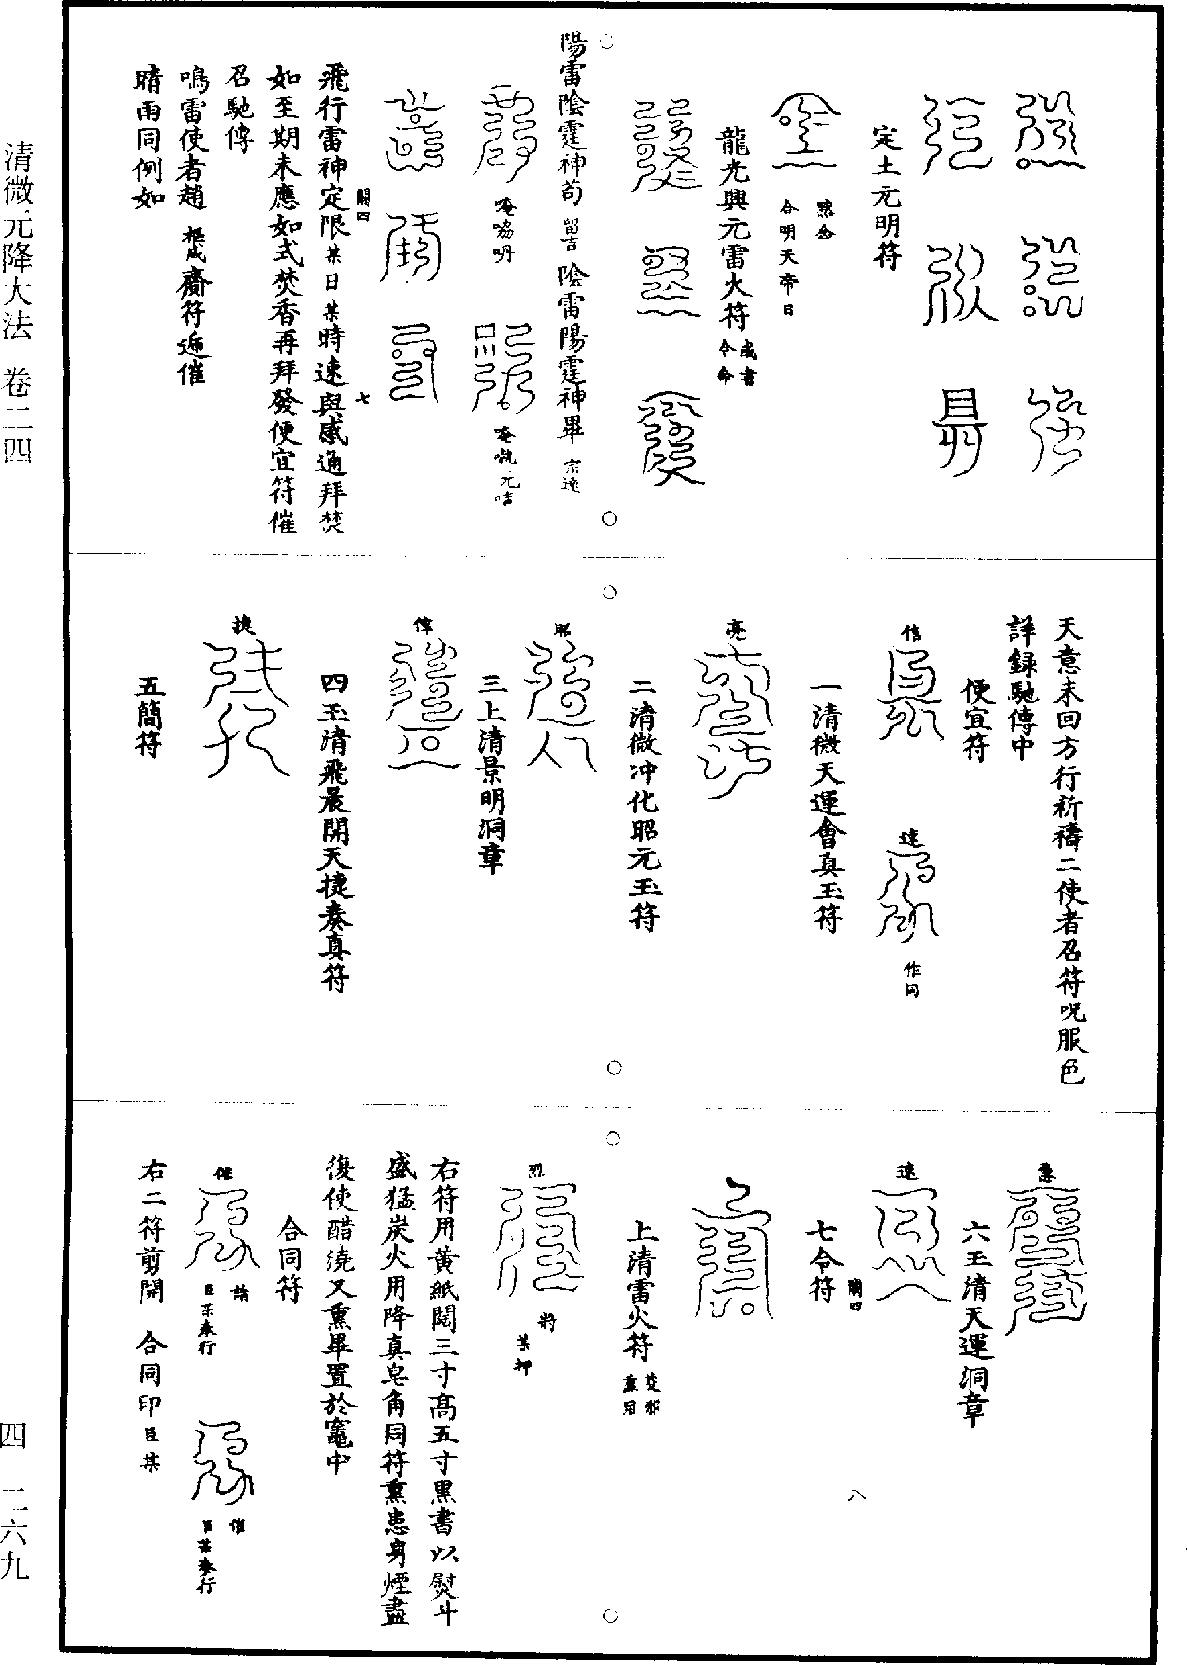 定土元明符
黙念
合明天帝日
龍光興元雷火符
令命
陽雷陰霆神苟 留吉 陰雷陽霆神畢 宗遠
飛行雷神定限某日某時速與感通拜焚
如至期未應如式焚香再拜發便宜符催
召馳傳
鳴雷使者趙 齎符逓催
晴雨同例如
關四
七
天意未回方行祈禱二使者召符呪服色
詳録馳傳中
便宜符
信
速
作同
一清微天運會真玉符
亮
二清微冲化昭元玉符
昭
三上清景明洞章
偉
四玉清飛晨開天捷奏真符
捷
五簡符
六玉清天運洞章
速
七令符
關四
八
上清雷火符
烈
將
某押
右符用黄紙闊三寸高五寸黑書以熨斗
盛猛炭火用降真皂角同符熏患身煙盡
復使醋澆又熏畢置於竈中
合同符
催
請
臣某奉行
催
臣某奉行
右二符剪開 合同印 臣某
清微元降大法 卷二四
四 二六九